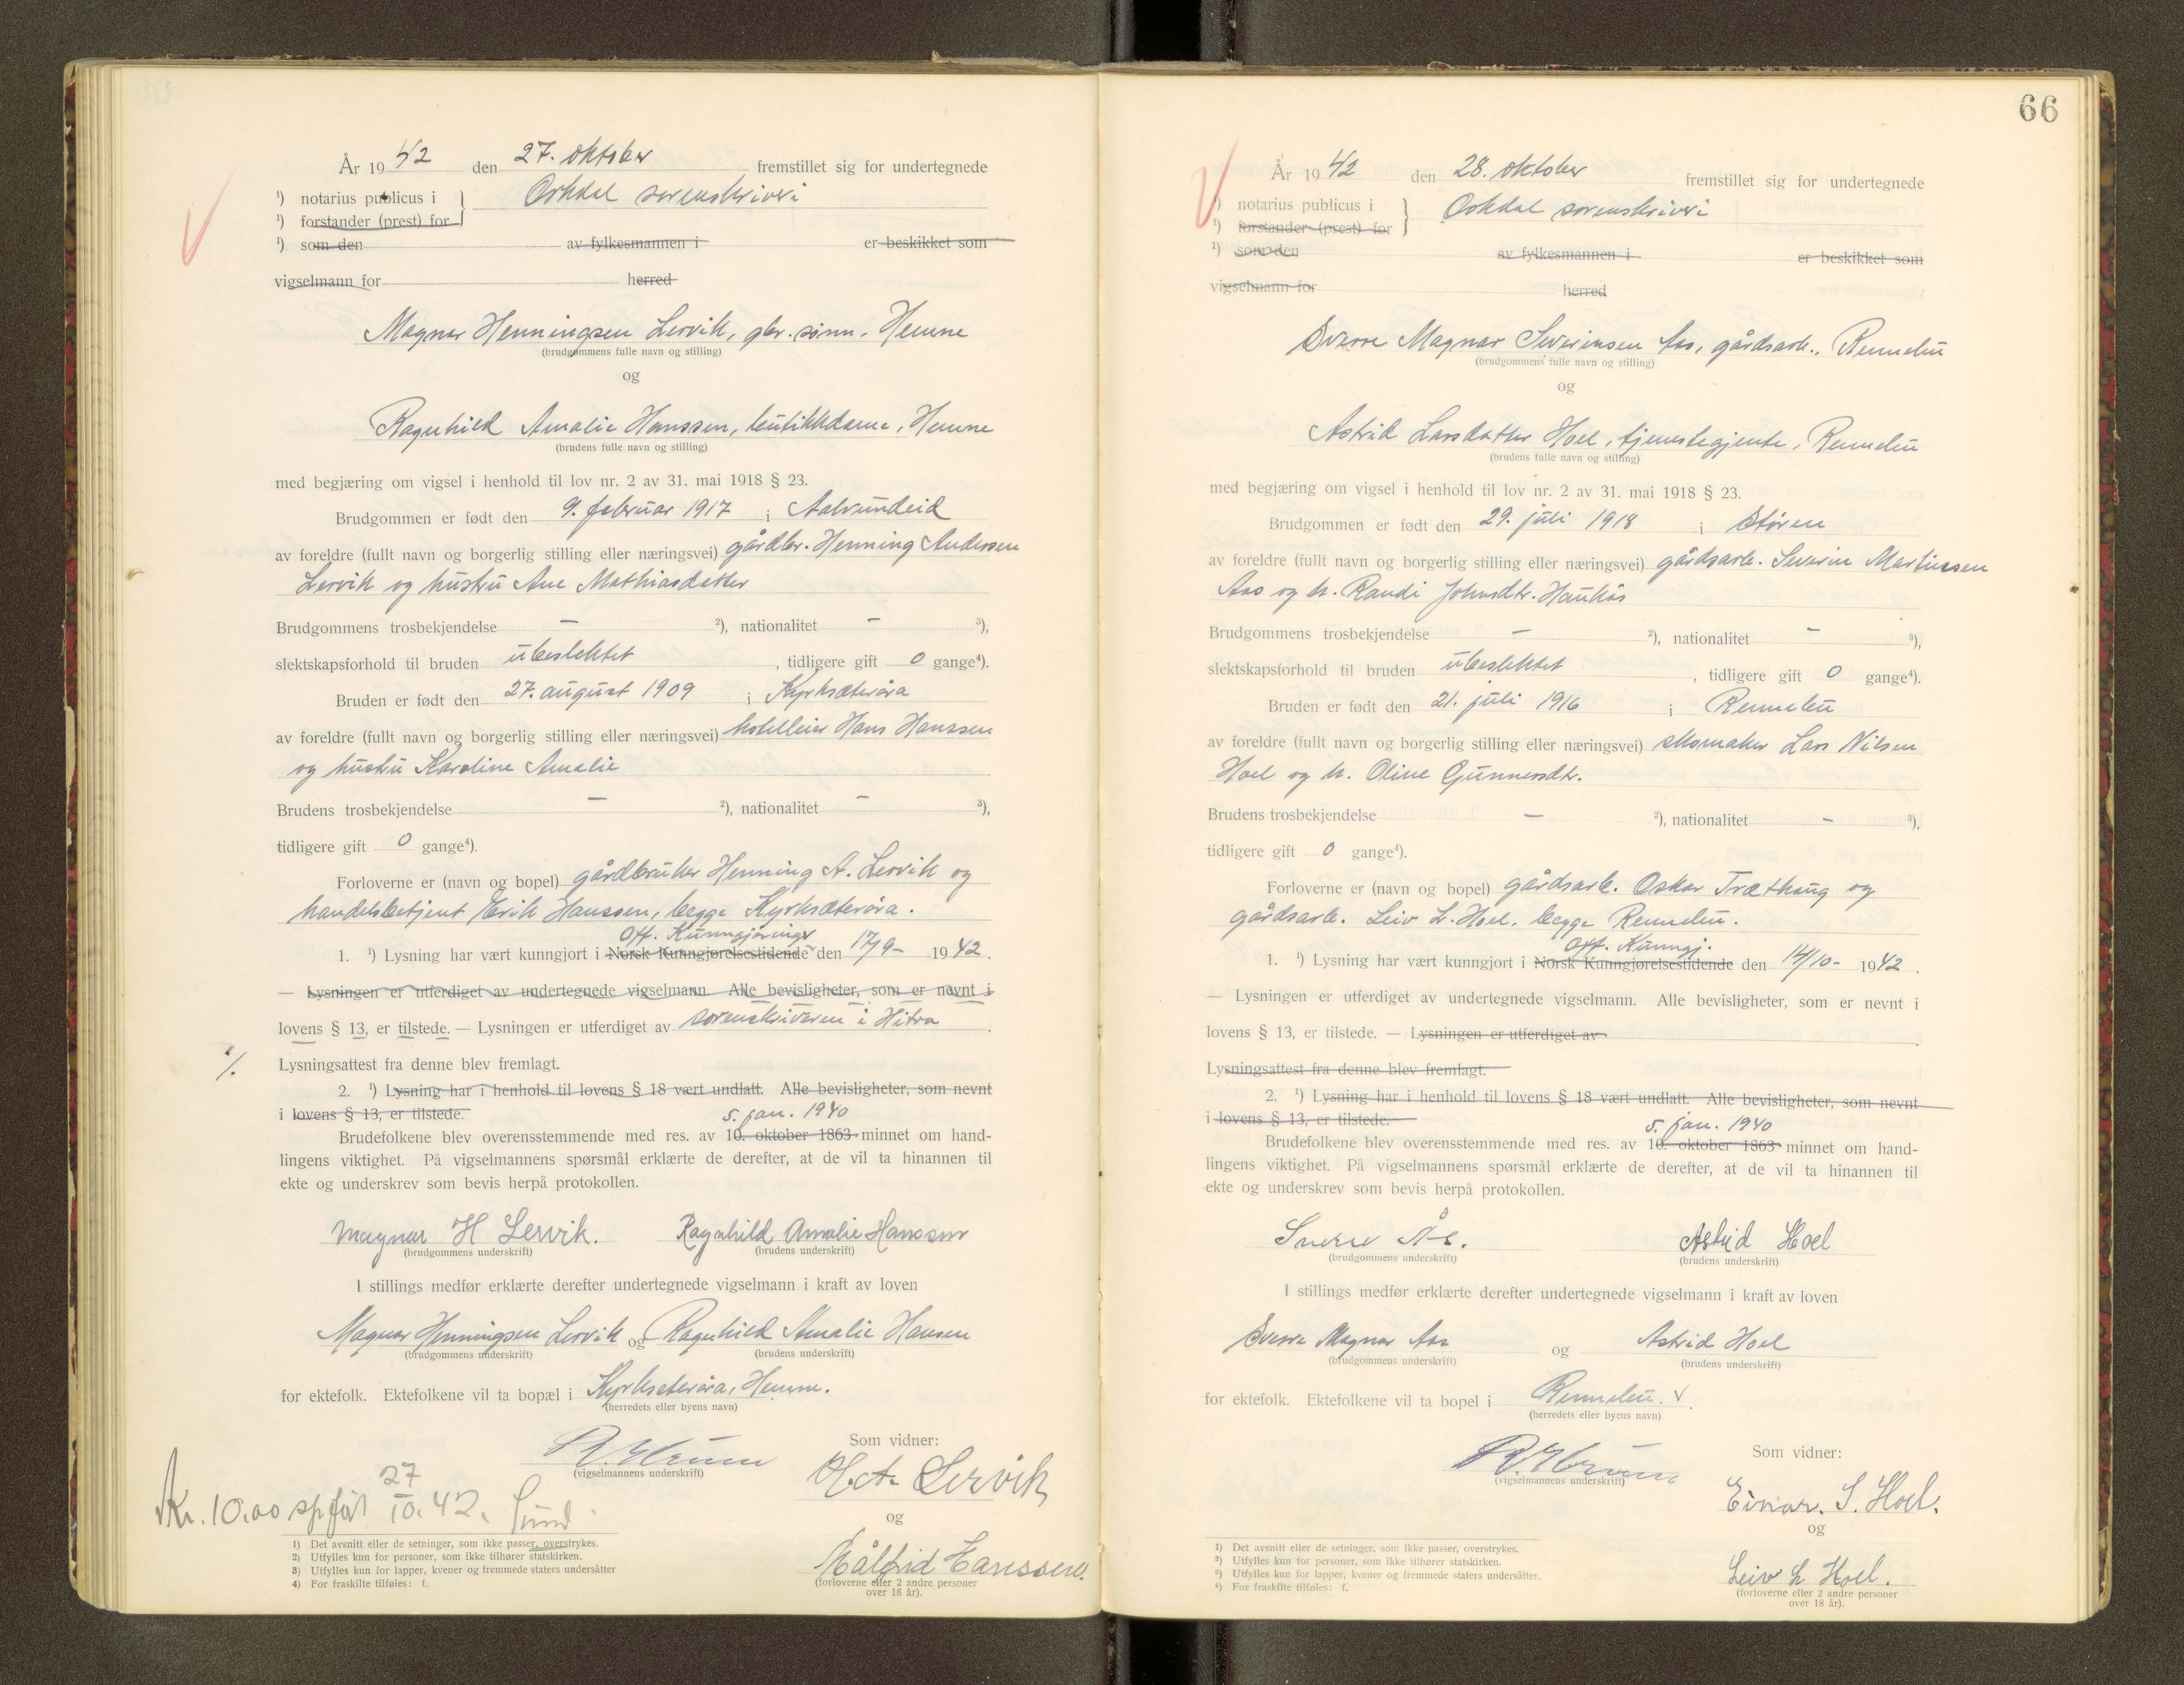 År 1942 den 27. oktober fremstillet sig for undertegnede
¹) notarius publicus i } Orkdal sorenskriveri
¹) forstander (prest) for
¹) som den av fylkesmannen i er beskikket som
vigselmann for herred
Magnar Henningsen Lervik, gbr. sønn, Hemne
(brudgommens fulle navn og stilling)
og
Ragnhild Amalie Hanssen, butikkdame, Hemne
(brudens fulle navn og stilling)
med begjæring om vigsel i henhold til lov nr. 2 av 31. mai 1918 § 23.
Brudgommen er født den 9. februar 1917 i Aalvundeid
av foreldre (fullt navn og borgerlig stilling eller næringsvei) gårdbr. Henning Andersen
Lervik og hustru Ane Mathiasdatter
Brudgommens trosbekjendelse – ²), nationalitet – ³),
slektskapsforhold til bruden ubeslektet, tidligere gift 0 gange⁴).
Bruden er født den 27. august 1909 i Kyrksæterøra
av foreldre (fullt navn og borgerlig stilling eller næringsvei) hotelleier Hans Hanssen
og hustru Karoline Amalie
Brudens trosbekjendelse – ²), nationalitet – ³),
tidligere gift 0 gange⁴).
Forloverne er (navn og bopel) gårdbruker Henning A. Lervik og
handelsbetjent Erik Hanssen, begge Kyrksæterøra.
Off. Kunngjøringer
1. ¹) Lysning har vært kunngjort i Norsk Kunngjørelsestidende den 17/9- 1942.
— Lysningen er utferdiget av undertegnede vigselmann. Alle bevisligheter, som er nevnt i
lovens § 13, er tilstede. — Lysningen er utferdiget av sorenskriveren i Hitra.
Lysningsattest fra denne blev fremlagt.
2. ¹) Lysning har i henhold til lovens § 18 vært undlatt. Alle bevisligheter, som nevnt
i lovens § 13, er tilstede.
5. jan. 1940
Brudefolkene blev overensstemmende med res. av 10. oktober 1863 minnet om hand-
lingens viktighet. På vigselmannens spørsmål erklærte de derefter, at de vil ta hinannen til
ekte og underskrev som bevis herpå protokollen.
Magnar H Lervik. Ragnhild Amalie Hanssen
(brudgommens underskrift) (brudens underskrift)
I stillings medfør erklærte derefter undertegnede vigselmann i kraft av loven
Magnar Henningsen Lervik og Ragnhild Amalie Hansen
(brudgommens underskrift) (brudens underskrift)
for ektefolk. Ektefolkene vil ta bopæl i Kyrksæterøra, Hemne.
(herredets eller byens navn)
Som vidner:
(vigselmannens underskrift)
H. A. Lervik
og
Målfrid Hanssen.
(forloverne eller 2 andre personer
over 18 år).
Kr. 10.00 27/10.42.
1) Det avsnitt eller de setninger, som ikke passer, overstrykes.
2) Utfylles kun for personer, som ikke tilhører statskirken.
3) Utfylles kun for lapper, kvener og fremmede staters undersåtter
4) For fraskilte tilføies: f.
66
År 1942 den 28. oktober fremstillet sig for undertegnede
¹) notarius publicus i } Orkdal sorenskriveri
¹) forstander (prest) for
¹) som den av fylkesmannen i er beskikket som
vigselmann for herred
Sverre Magnar Severinsen Aas, gårdsarb., Rennebu
(brudgommens fulle navn og stilling)
og
Astrid Larsdatter Hoel, tjenestegjente, Rennebu
(brudens fulle navn og stilling)
med begjæring om vigsel i henhold til lov nr. 2 av 31. mai 1918 § 23.
Brudgommen er født den 29. juli 1918 i Støren
av foreldre (fullt navn og borgerlig stilling eller næringsvei) gårdsarb. Severin Martinssen
Aas og h. Randi Johnsdtr. Haukås
Brudgommens trosbekjendelse – ²), nationalitet – ³),
slektskapsforhold til bruden ubeslektet, tidligere gift 0 gange⁴).
Bruden er født den 21. juli 1916 i Rennebu
av foreldre (fullt navn og borgerlig stilling eller næringsvei) skomaker Lars Nilsen
Hoel og h. Oline Gunnersdtr.
Brudens trosbekjendelse – ²), nationalitet – ³),
tidligere gift 0 gange⁴).
Forloverne er (navn og bopel) gårdsarb. Oskar Træthaug og
gårdsarb. Leiv L. Hoel, begge Rennebu.
Off. Kunngj.
1. ¹) Lysning har vært kunngjort i Norsk Kunngjørelsestidende den 14/10- 1942.
— Lysningen er utferdiget av undertegnede vigselmann. Alle bevisligheter, som er nevnt i
lovens § 13, er tilstede. — Lysningen er utferdiget av
Lysningsattest fra denne blev fremlagt.
2. ¹) Lysning har i henhold til lovens § 18 vært undlatt. Alle bevisligheter, som nevnt
i lovens § 13, er tilstede.
5. jan. 1940
Brudefolkene blev overensstemmende med res. av 10. oktober 1863 minnet om hand-
lingens viktighet. På vigselmannens spørsmål erklærte de derefter, at de vil ta hinannen til
ekte og underskrev som bevis herpå protokollen.
Sverre Ås. Astrid Hoel
(brudgommens underskrift) (brudens underskrift)
I stillings medfør erklærte derefter undertegnede vigselmann i kraft av loven
Sverre Magnar Aas og Astrid Hoel
(brudgommens underskrift) (brudens underskrift)
for ektefolk. Ektefolkene vil ta bopel i Rennebu.
(herredets eller byens navn)
Som vidner:
(vigselmannens underskrift)
Einar. S. Hoel.
og
Leiv L Hoel.
(forloverne eller 2 andre personer
over 18 år).
¹) Det avsnitt eller de setninger, som ikke passer, overstrykes.
²) Utfylles kun for personer, som ikke tilhører statskirken.
³) Utfylles kun for lapper, kvener og fremmede staters undersåtter.
⁴) For fraskilte tilføies: f.